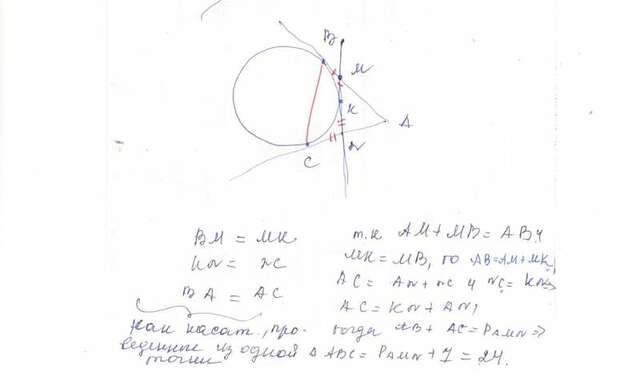 B
M
K
A
N
C
BM = MK
KN = NC
BA = AC
как касат., про-
веденные из одной
точки
т.к AM + MB = AB и
MK = MB, то AB = AM + MK,
AC = AN + NC и NC = KN =>
AC = KN + AN,
тогда AB + AC = PAMN =>
△ ABC = PAMN + 7 = 24.